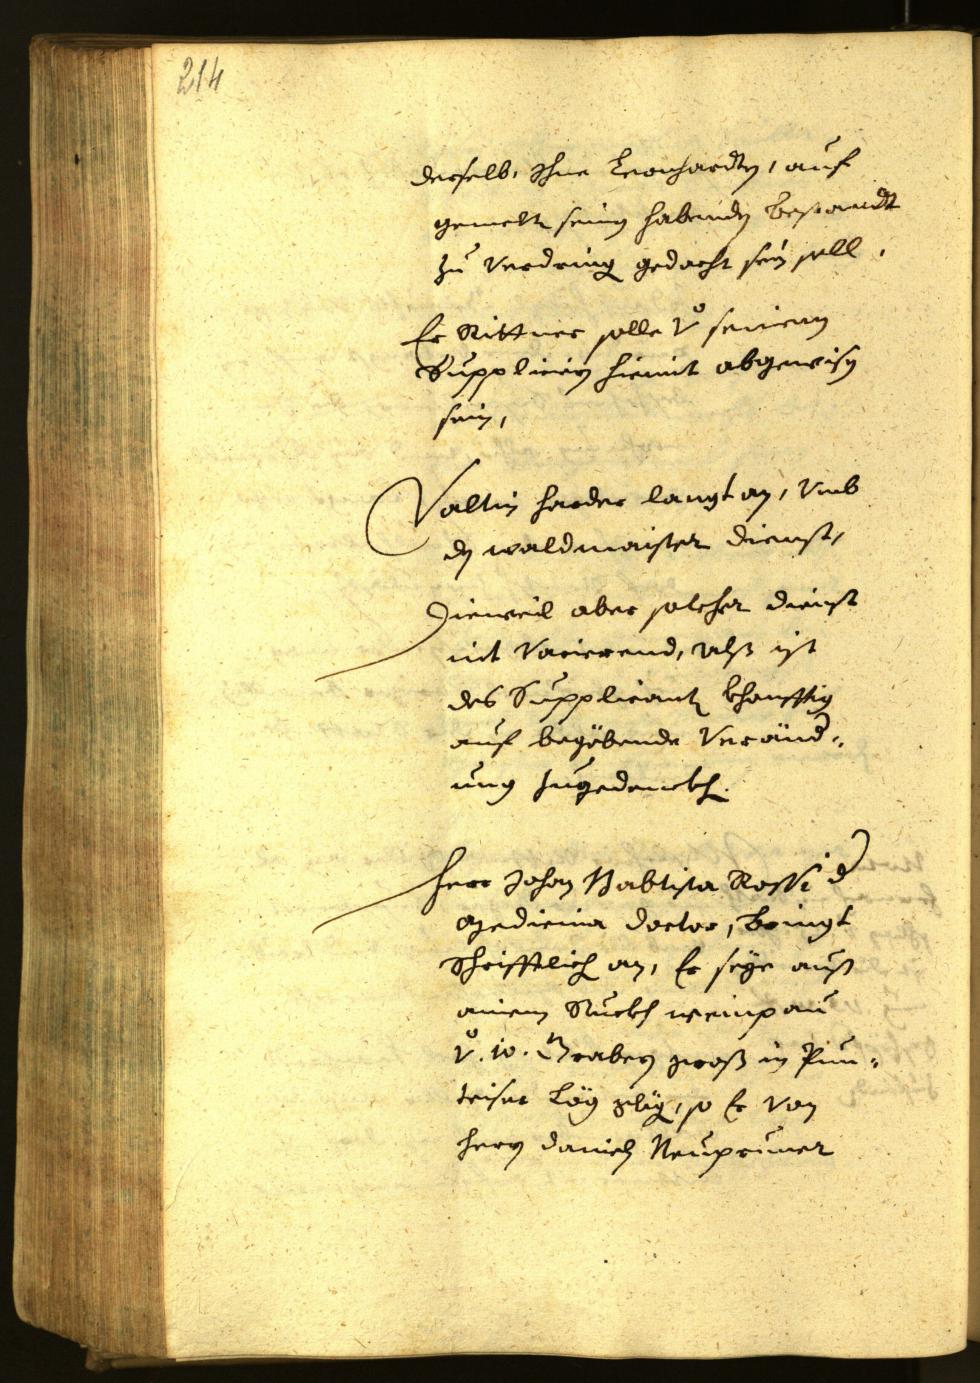 214
derselb, Ihne Leonhardten, auf
gemelt seinen habenden bestandt
zu verdring gedacht sein soll,
Er Rittner solle von seinem
Supplicirn hiemit abgewisen
sein,
Valtin harder langt an, vmb
den waldmaister dienst,
Dieweil aber solcher dienst
nit Vacierend, alß ist
des Supplicanten khonfftig
auf begebende Veränd-
ung zugedenckhen.
Herr Johan Babtista Rossi der
Medicina doctor, bringt
Schrifftlich an, Er seye auß
ainem Stuckh weinpau
von 10. Graber groß in Pun-
teiser Leg, so Er von
herrn Daniel Neupruner